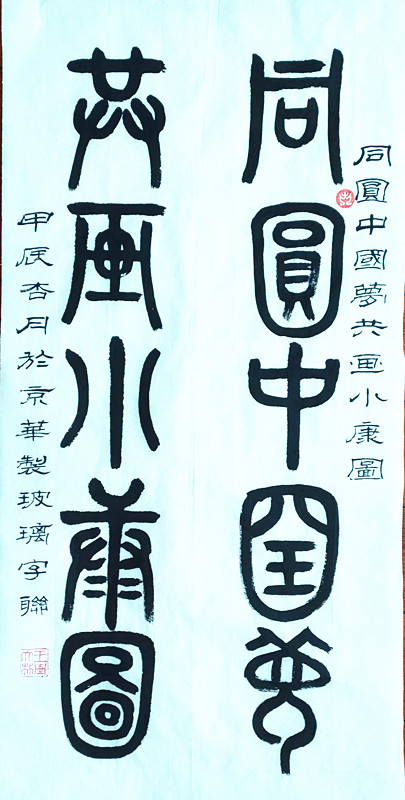 同圓中國夢共画小康圖
同圓中國夢
共画小康圖
甲辰杏月於京華製玻璃字聯